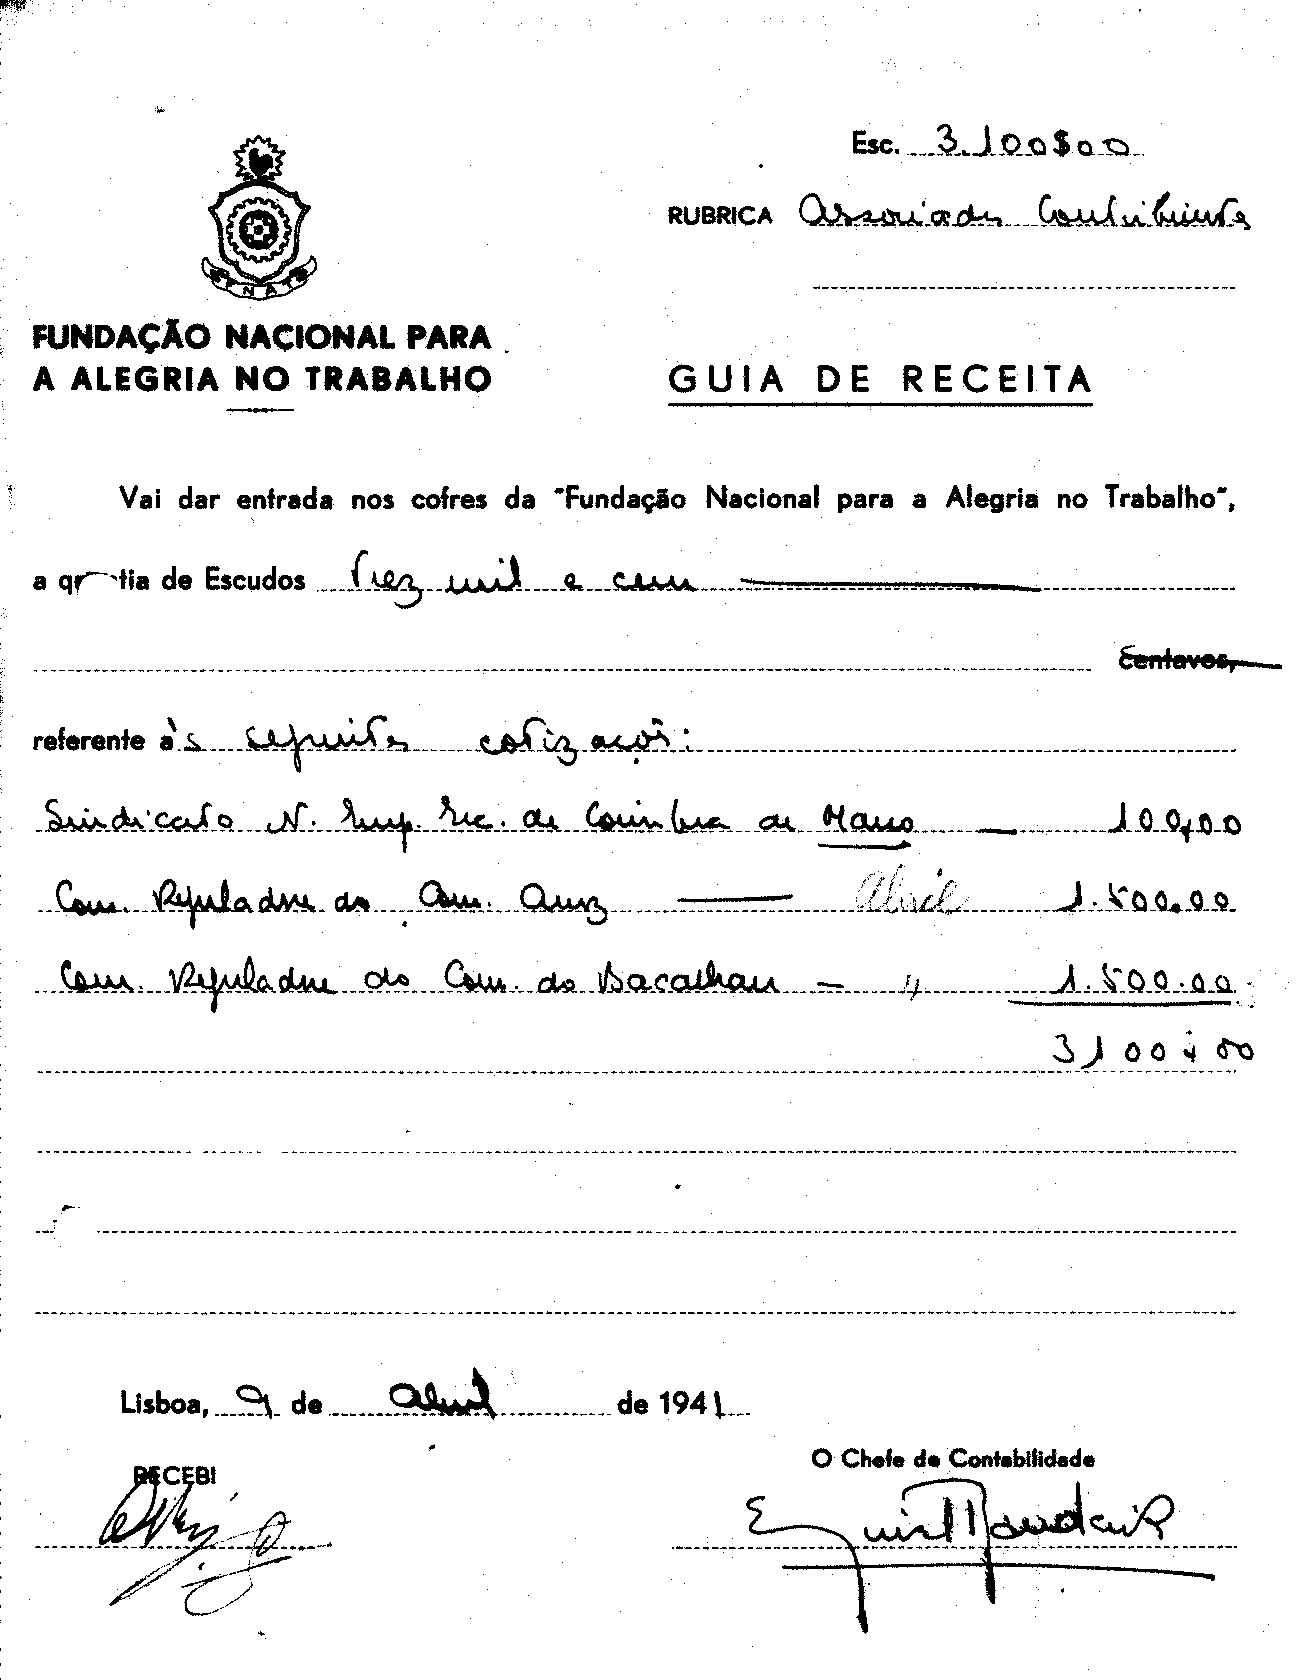 Esc. 3.100$00
RUBRICA Associados Contribuintes
FNAT
FUNDAÇÃO NACIONAL PARA
A ALEGRIA NO TRABALHO
GUIA DE RECEITA
Vai dar entrada nos cofres da "Fundação Nacional para a Alegria no Trabalho",
a quantia de Escudos Trez mil e cem
Centavos,
referente às seguintes cotizações:
Sindicato N. Emp. Esc. de Coimbra de Março — 100,00
Com. Reguladora do Com. Arroz — Abril 1.500.00
Com. Reguladora do Com. do Bacalhau — " 1.500.00
3100$00
Lisboa, 9 de Abril de 1941
RECEBI
O Chefe da Contabilidade